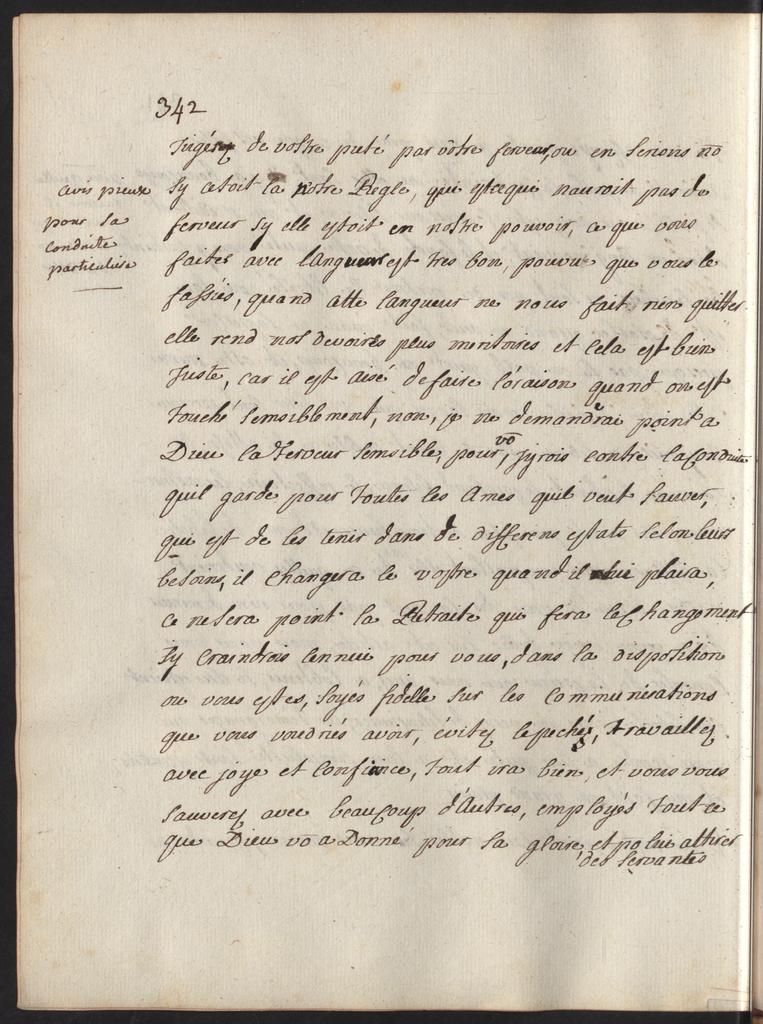 342
Jugéz de vostre pieté par vôtre ferveur, ou en serions nō
sy cetoit la notre Regle, qui estcequi nauroit pas de
ferveur sy elle estoit en nostre pouvoir, ce que vous
faites avec langueur est tres bon, pouvu que vous le
fassiés, quand cette langueur ne nous fait rien quitter
elle rend nos devoires plus meritoires et cela est bien
Juste, car il est aisé defaire loraison quand on est
touché sensiblement, non, je ne demandrai point a
Dieu la ferveur sensible, pour vō, jyrois contre laconduite
quil garde pour toutes les ames quil veut sauver,
qui est de les tenir dans de differens estats selon leurs
besoins, il changera le vostre quand il lui plaira,
ce nesera point la Retraite qui fera lechangement
Jy craindrois lennui pour vous, dans la disposition
ou vous estes, soyés fidelle sur les communications
que vous voudriés avoir, évitez lepeché, travaillez
avec joye et confiance, tout ira bien, et vous vous
sauverez avec beaucoup d'autres, employés tout ce
que Dieu vō a Donné pour sa gloire, et po lui attirer
des servantes
avis pieux
pour sa
conduite
particuliere